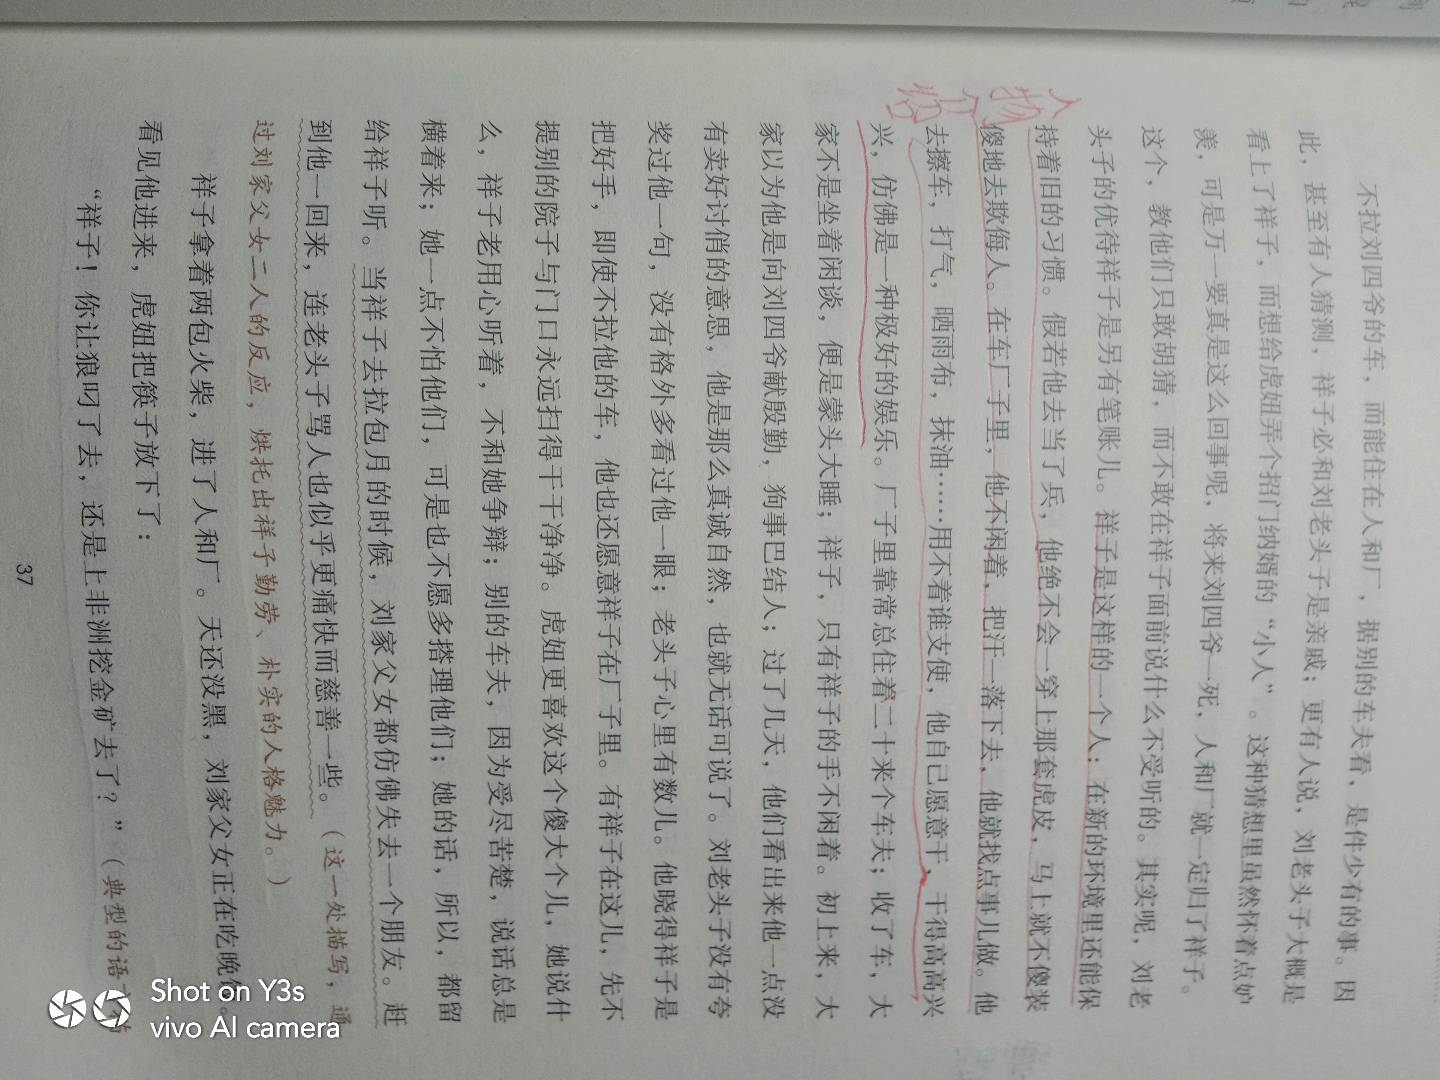 人物
介绍
不拉刘四爷的车，而能住在人和厂，据别的车夫看，是件少有的事。因
此，甚至有人猜测，祥子必和刘老头子是亲戚；更有人说，刘老头子大概是
看上了祥子，而想给虎妞弄个招门纳婿的“小人”。这种猜想里虽然怀着点妒
羡，可是万一要真是这么回事呢，将来刘四爷一死，人和厂就一定归了祥子。
这个，教他们只敢胡猜，而不敢在祥子面前说什么不受听的。其实呢，刘老
头子的优待祥子是另有笔账儿。祥子是这样的一个人；在新的环境里还能保
持着旧的习惯。假若他去当了兵，他绝不会一穿上那套虎皮，马上就不傻装
傻地去欺侮人。在车厂子里，他不闲着，把汗一落下去，他就找点事儿做。他
去擦车，打气，晒雨布，抹油……用不着谁支使，他自己愿意干，干得高高兴
兴，仿佛是一种极好的娱乐。厂子里靠常总住着二十来个车夫；收了车，大
家不是坐着闲谈，便是蒙头大睡；祥子，只有祥子的手不闲着。初上来，大
家以为他是向刘四爷献殷勤，狗事巴结人；过了几天，他们看出来他一点没
有卖好讨俏的意思，他是那么真诚自然，也就无话可说了。刘老头子没有夸
奖过他一句，没有格外多看过他一眼；老头子心里有数儿。他晓得祥子是
把好手，即使不拉他的车，他也还愿意祥子在厂子里。有祥子在这儿，先不
提别的院子与门口永远扫得干干净净。虎妞更喜欢这个傻大个儿，她说什
么，祥子老用心听着，不和她争辩；别的车夫，因为受尽苦楚，说话总是
横着来；她一点不怕他们，可是也不愿多搭理他们；她的话，所以，都留
给祥子听。当祥子去拉包月的时候，刘家父女都仿佛失去一个朋友。赶
到他一回来，连老头子骂人也似乎更痛快而慈善一些。（这一处描写，通
过刘家父女二人的反应，烘托出祥子勤劳、朴实的人格魅力。）
祥子拿着两包火柴，进了人和厂。天还没黑，刘家父女正在吃晚饭。
看见他进来，虎妞把筷子放下了：
“祥子！你让狼叼了去，还是上非洲挖金矿去了？”（典型的语
37
Shot on Y3s
vivo AI camera